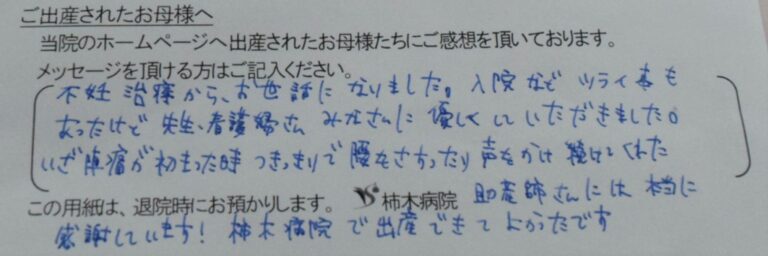 ご出産されたお母様へ
当院のホームページへ出産されたお母様たちにご感想を頂いております。
メッセージを頂ける方はご記入ください。
不妊治療から、お世話になりました。入院など ツライ事も
あったけど 先生、看護婦さん みなさんに 優しくしていただきました。
いざ陣痛が初まった時 つきっきりで 腰をさすったり 声をかけ続けてくれた
この用紙は、退院時にお預かりします。 柿木病院 助産師さんには 本当に
感謝しています! 柿木病院で出産できて よかったです